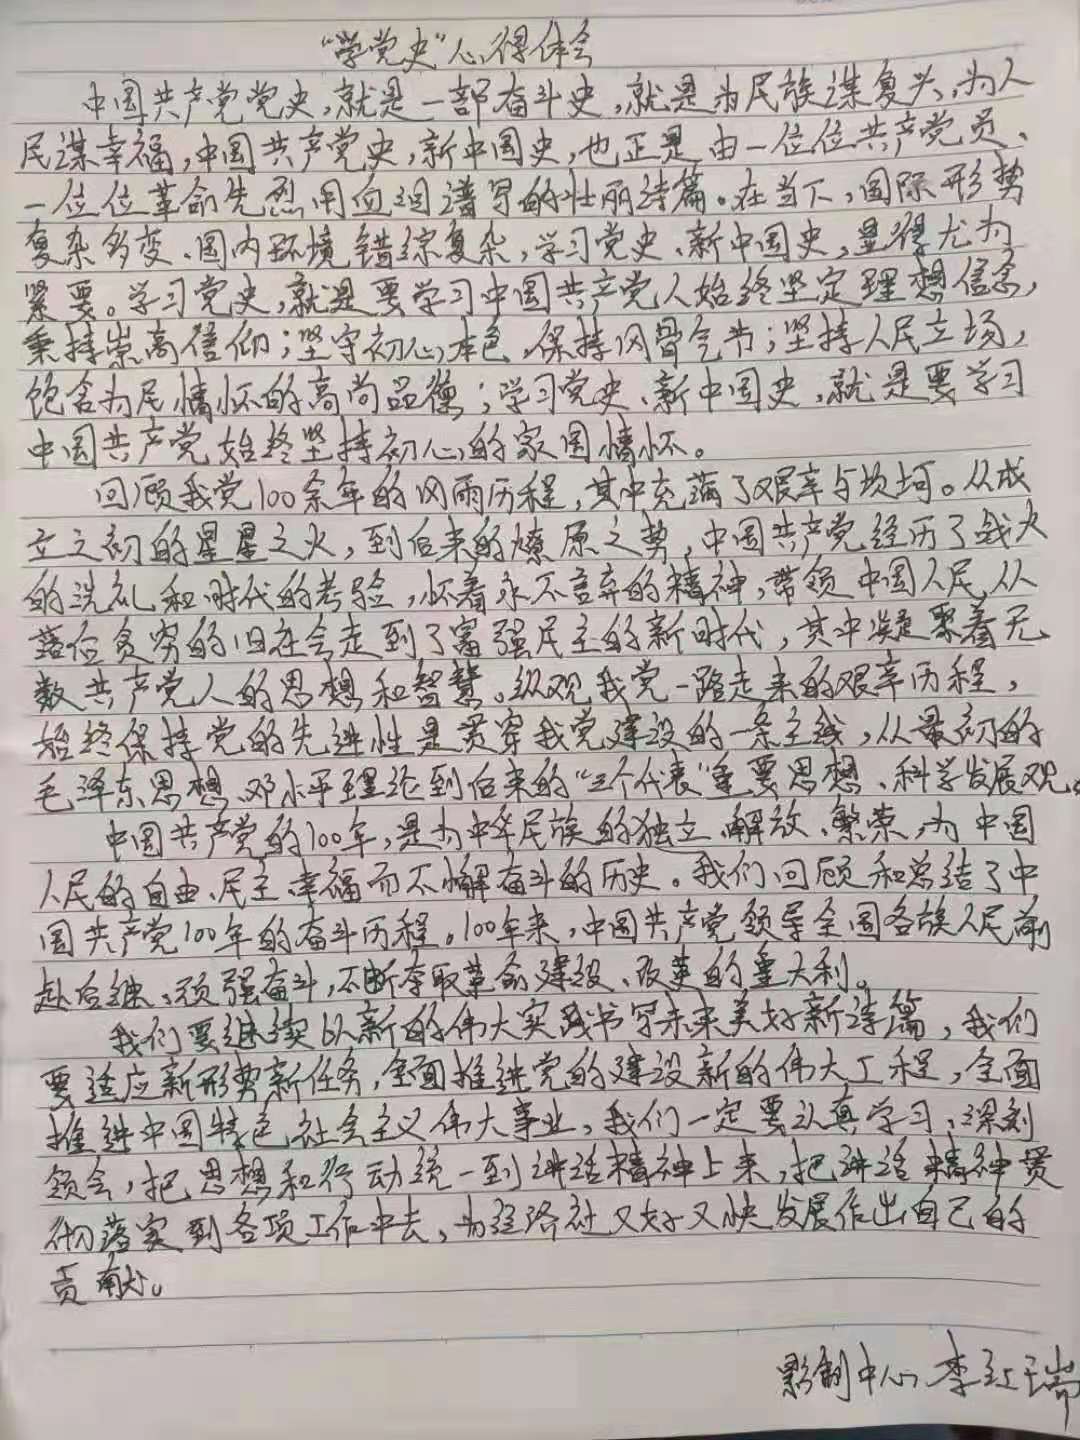 “学党史”心得体会
中国共产党党史,就是一部奋斗史,就是为民族谋复兴,为人
民谋幸福,中国共产党史,新中国史,也正是由一位位共产党员、
一位位革命先烈用血泪谱写的壮丽诗篇。在当下,国际形势
复杂多变、国内环境错综复杂,学习党史、新中国史,显得尤为
紧要。学习党史,就是要学习中国共产党人始终坚定理想信念,
秉持崇高信仰;坚守初心本色,保持风骨气节;坚持人民立场,
饱含为民情怀的高尚品德;学习党史、新中国史,就是要学习
中国共产党始终坚持初心的家国情怀。
回顾我党100余年的风雨历程,其中充满了艰辛与坎坷。从成
立之初的星星之火,到后来的燎原之势,中国共产党经历了战火
的洗礼和时代的考验,怀着永不言弃的精神,带领中国人民从
落后贫穷的旧社会走到了富强民主的新时代,其中凝聚着无
数共产党人的思想和智慧。纵观我党一路走来的艰辛历程,
始终保持党的先进性是贯穿我党建设的一条主线,从最初的
毛泽东思想、邓小平理论到后来的“三个代表”重要思想、科学发展观。
中国共产党的100年,是为中华民族的独立、解放、繁荣,为中国
人民的自由、民主、幸福而不懈奋斗的历史。我们回顾和总结了中
国共产党100年的奋斗历程。100年来,中国共产党领导全国各族人民前
赴后继、顽强奋斗,不断夺取革命、建设、改革的重大利。
我们要继续以新的伟大实践书写未来美好新诗篇,我们
要适应新形势新任务,全面推进党的建设新的伟大工程,全面
推进中国特色社会主义伟大事业,我们一定要认真学习,深刻
领会,把思想和行动统一到讲话精神上来,把讲话精神贯
彻落实到各项工作中去,为经济社又好又快发展作出自己的
贡献。
影制中心 李红瑞